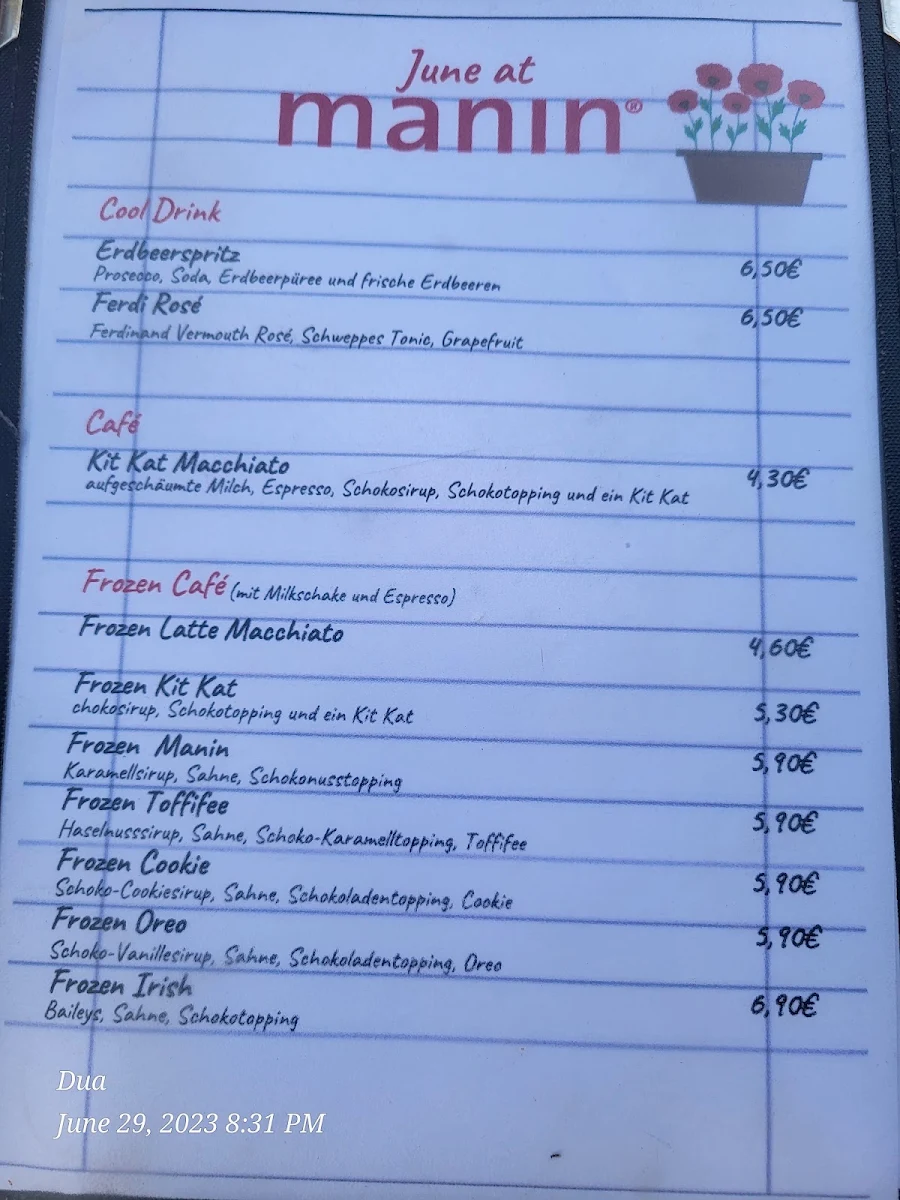 June at
manin®
Cool Drink
Erdbeerspritz
6,50€
Prosecco, Soda, Erdbeerpüree und frische Erdbeeren
Ferdi Rosé
6,50€
Ferdinand Vermouth Rosé, Schweppes Tonic, Grapefruit
Café
Kit Kat Macchiato
4,30€
aufgeschäumte Milch, Espresso, Schokosirup, Schokotopping und ein Kit Kat
Frozen Café (mit Milkschake und Espresso)
Frozen Latte Macchiato
4,60€
Frozen Kit Kat
5,30€
chokosirup, Schokotopping und ein Kit Kat
Frozen Manin
5,90€
Karamellsirup, Sahne, Schokonusstopping
Frozen Toffifee
5,90€
Haselnusssirup, Sahne, Schoko-Karamelltopping, Toffifee
Frozen Cookie
5,90€
Schoko-Cookiesirup, Sahne, Schokoladentopping, Cookie
Frozen Oreo
5,90€
Schoko-Vanillesirup, Sahne, Schokoladentopping, Oreo
Frozen Irish
6,90€
Baileys, Sahne, Schokotopping
Dua
June 29, 2023 8:31 PM